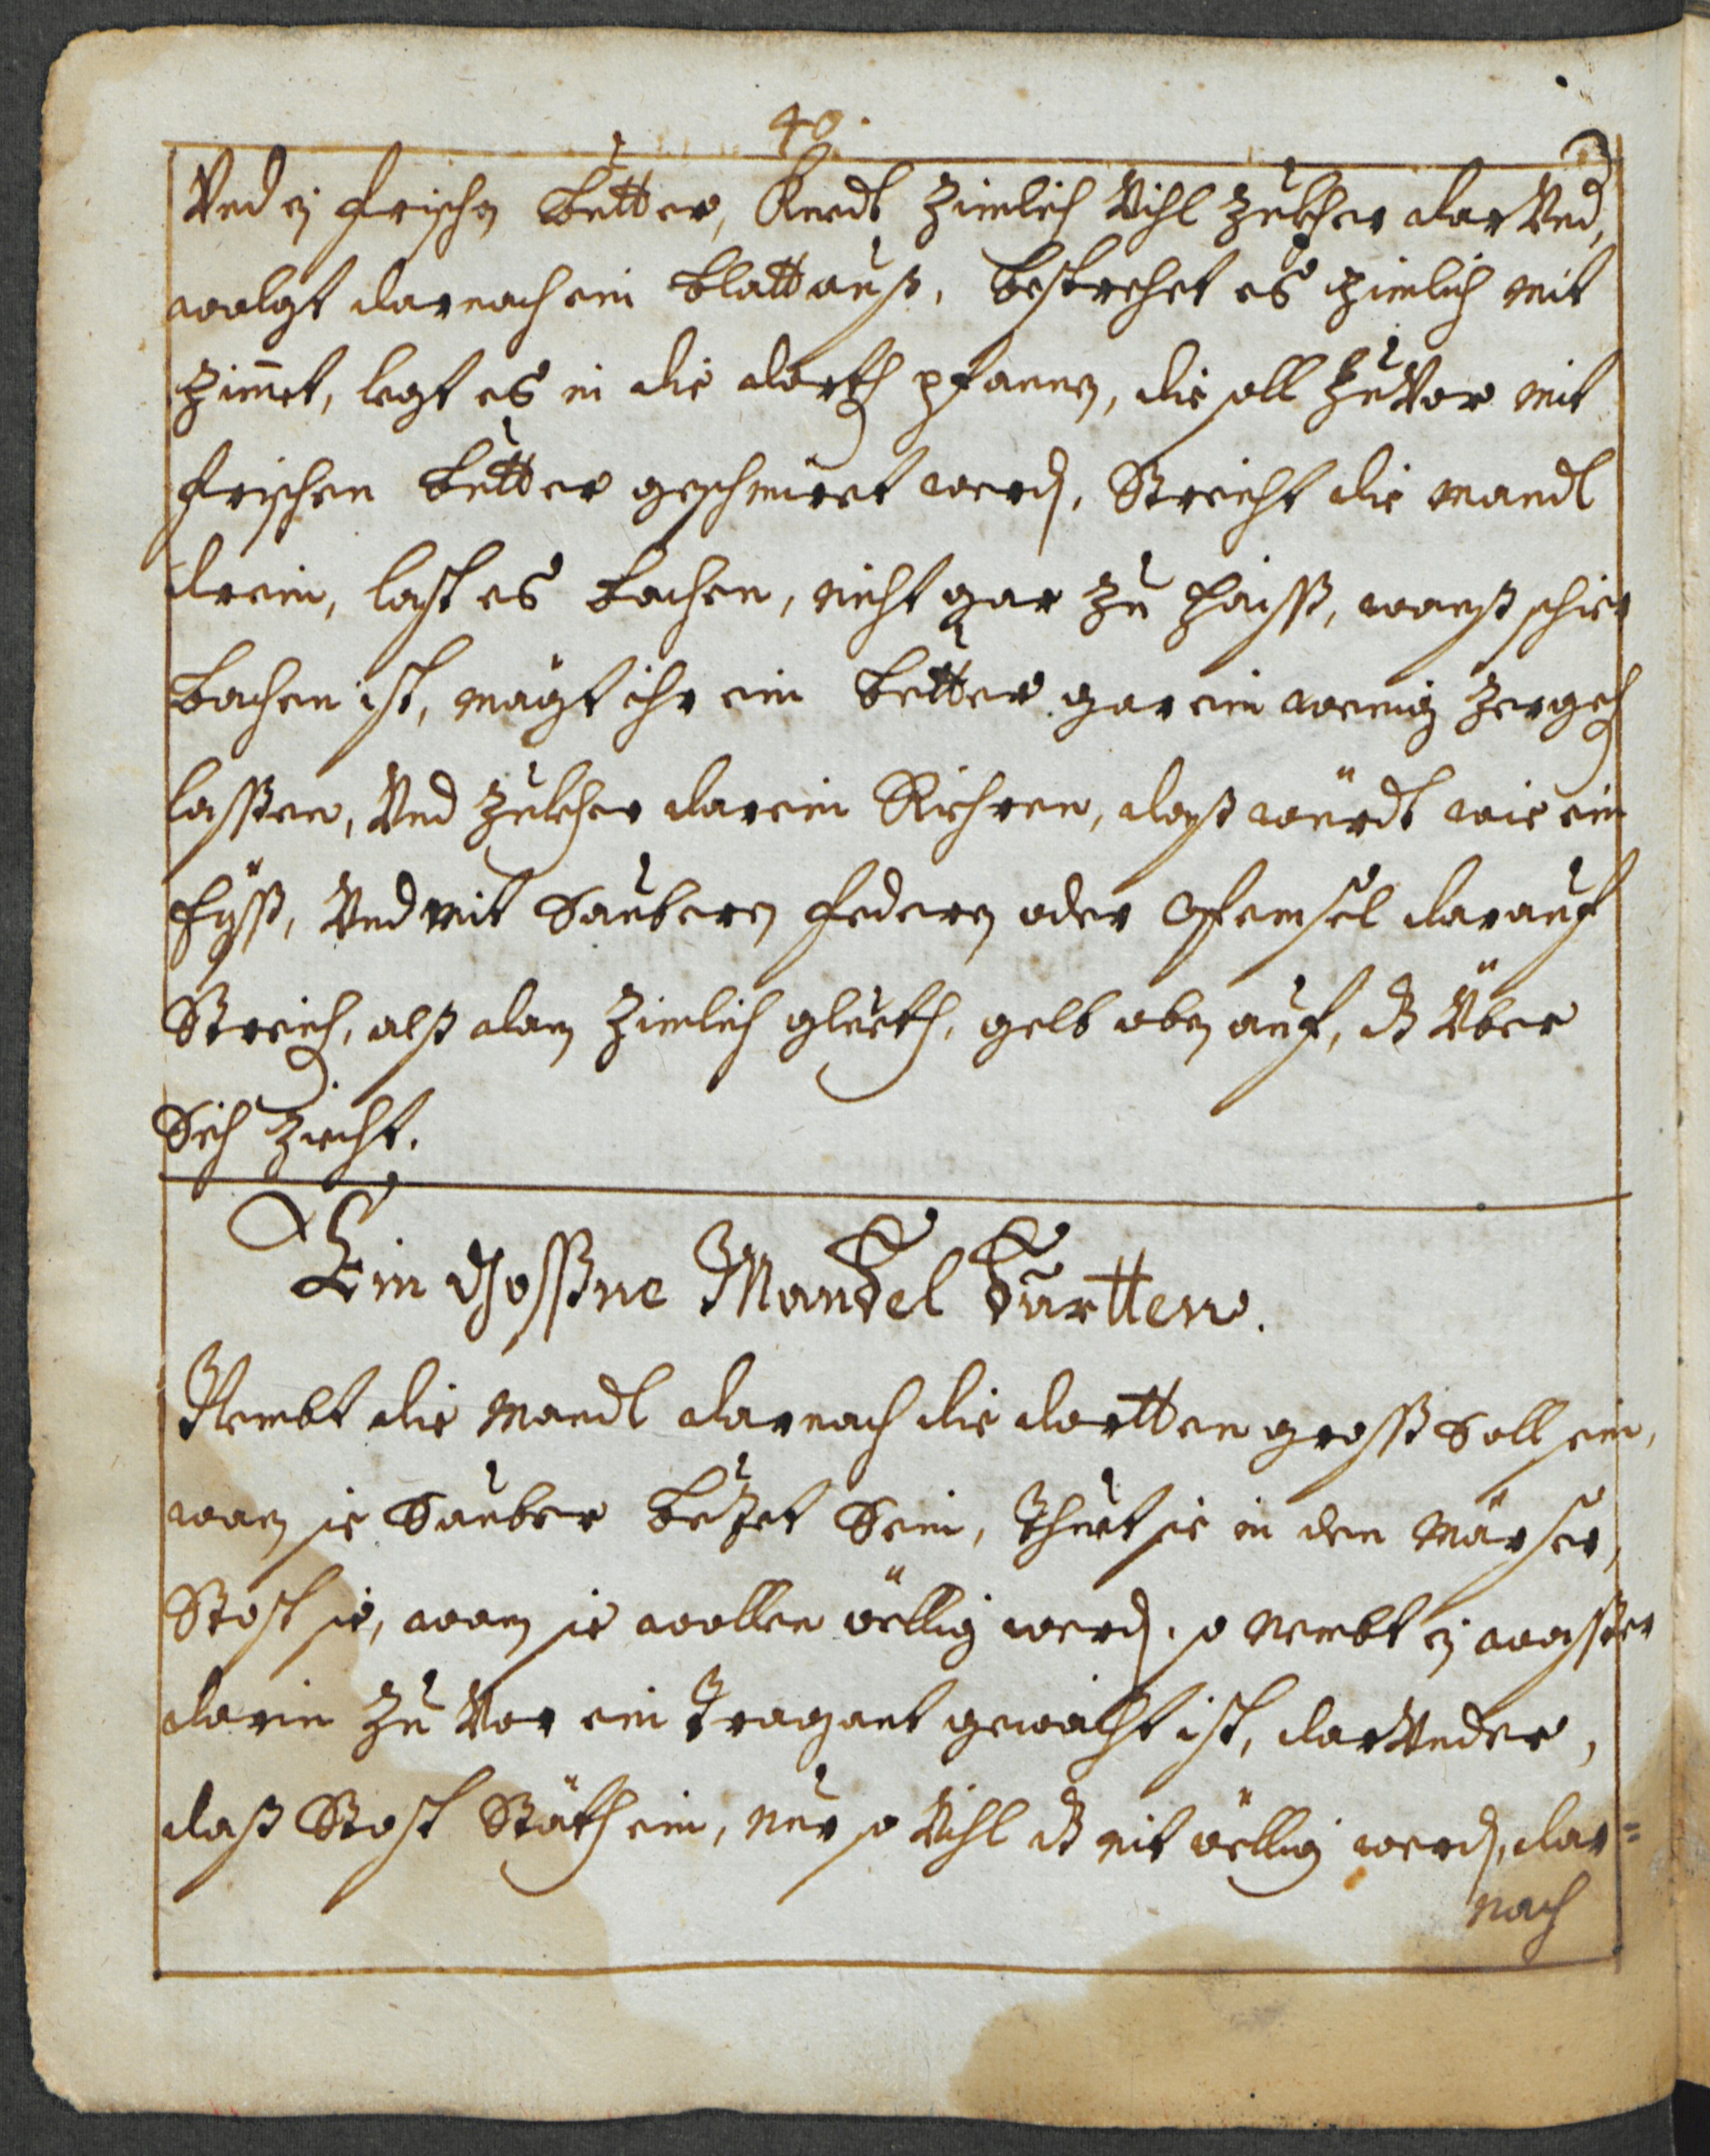 40.
Vnd ein frischen Butter, Knedt zimlich Vihl zukher dar Vnd,
walgt darnach ein blatt auß, bestrehet es zimlich mit
zimet, legt es in die dorth pfannen, die soll zu Vor mit
frischen butter geschmiret werden, Streicht die mandl
drein, last es bachen, nicht gar zu haiß, wanß schier
bachen ist, mögt ihr ein butter gar ein wenig zergeh
lassen, Vnd zukher darein Riehren, daß würdt wie ein
Eyß, Vnd mit Sauberen federen oder Pfemsel darauf
Streich, alß dan zimlich glueth, gelb oben auf, dß Über
Sich zicht.
Ein gstoßne Mandel Turtten.
Nembt die mandl darnach die dortten groß Soll sein,
wan sie Sauber buzet Sein, Thuet sie in den Mörser,
Stost sie, wan sie wollen öellig werden. so nembt ein wasser
darin zu Vor ein Tragant gewaicht ist, dar Vnder,
daß Stost Stäth ein, nur so Vihl dß nit öellig werden, dar=
nach